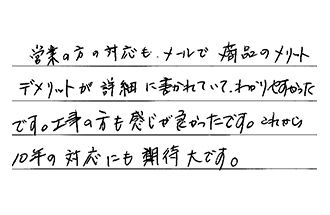 営業の方の対応も、メールで 商品のメリット
デメリットが 詳細に書かれていて、わかりやすかった
です。工事の方も感じが良かったです。これから
10年の対応にも期待大です。